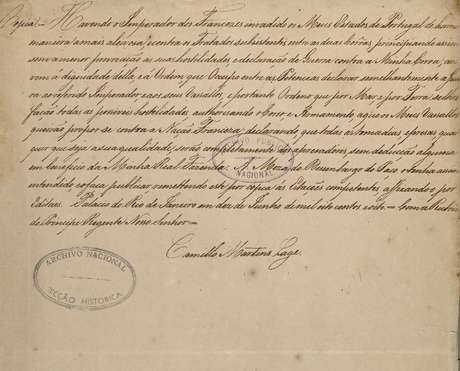 Copia. Havendo o Imperador dos Francezes invadido os Meus Estados de Portugal de huma
maneira a mais aleivosa, e contra os Tratados subsistentes entre as duas Corôas, principiando assim
sem a menor provocação as suas hostilidades e declaração de Guerra contra a Minha Corôa; con
vem á dignidade della, e á Ordem que Occupo entre as Potencias declarar semelhantemente a Guer
ra ao referido Imperador, e aos seus Vassallos, e portanto Ordeno que por Mar, e por Terra se lhes
fação todas as possiveis hostilidades, authorisando o Corso e Armamento a que os Meus Vassallos
queirão propor-se contra a Nação Franceza, declarando que todas as tomadias, e prezas qual
quer que seja a sua qualidade, serão completamente dos aprezadores, sem deducção alguma
em beneficio da Minha Real Fazenda. A Meza do Desembargo do Paço o tenha assim
entendido e o faça publicar, remettendo este por copia ás Estações competentes, e affixando-o por
Editaes. Palacio do Rio de Janeiro em dez de Junho de mil oito centos e oito = Com a Rubrica
do Principe Regente Nosso Senhor =
Camillo Martins Lage.
PUBLICO
NACIONAL
ARCHIVO NACIONAL
SECÇÃO HISTORICA